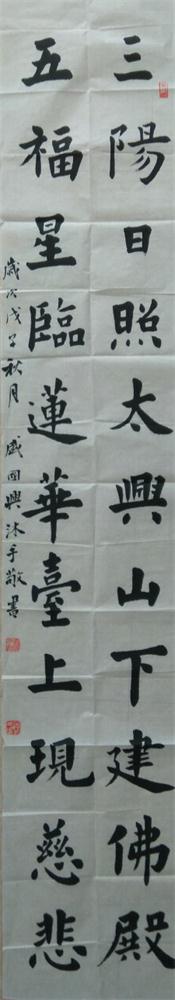 三陽日照太興山下建佛殿
五福星臨蓮華臺上現慈悲
歲次戊子秋月 盛回興沐手敬書